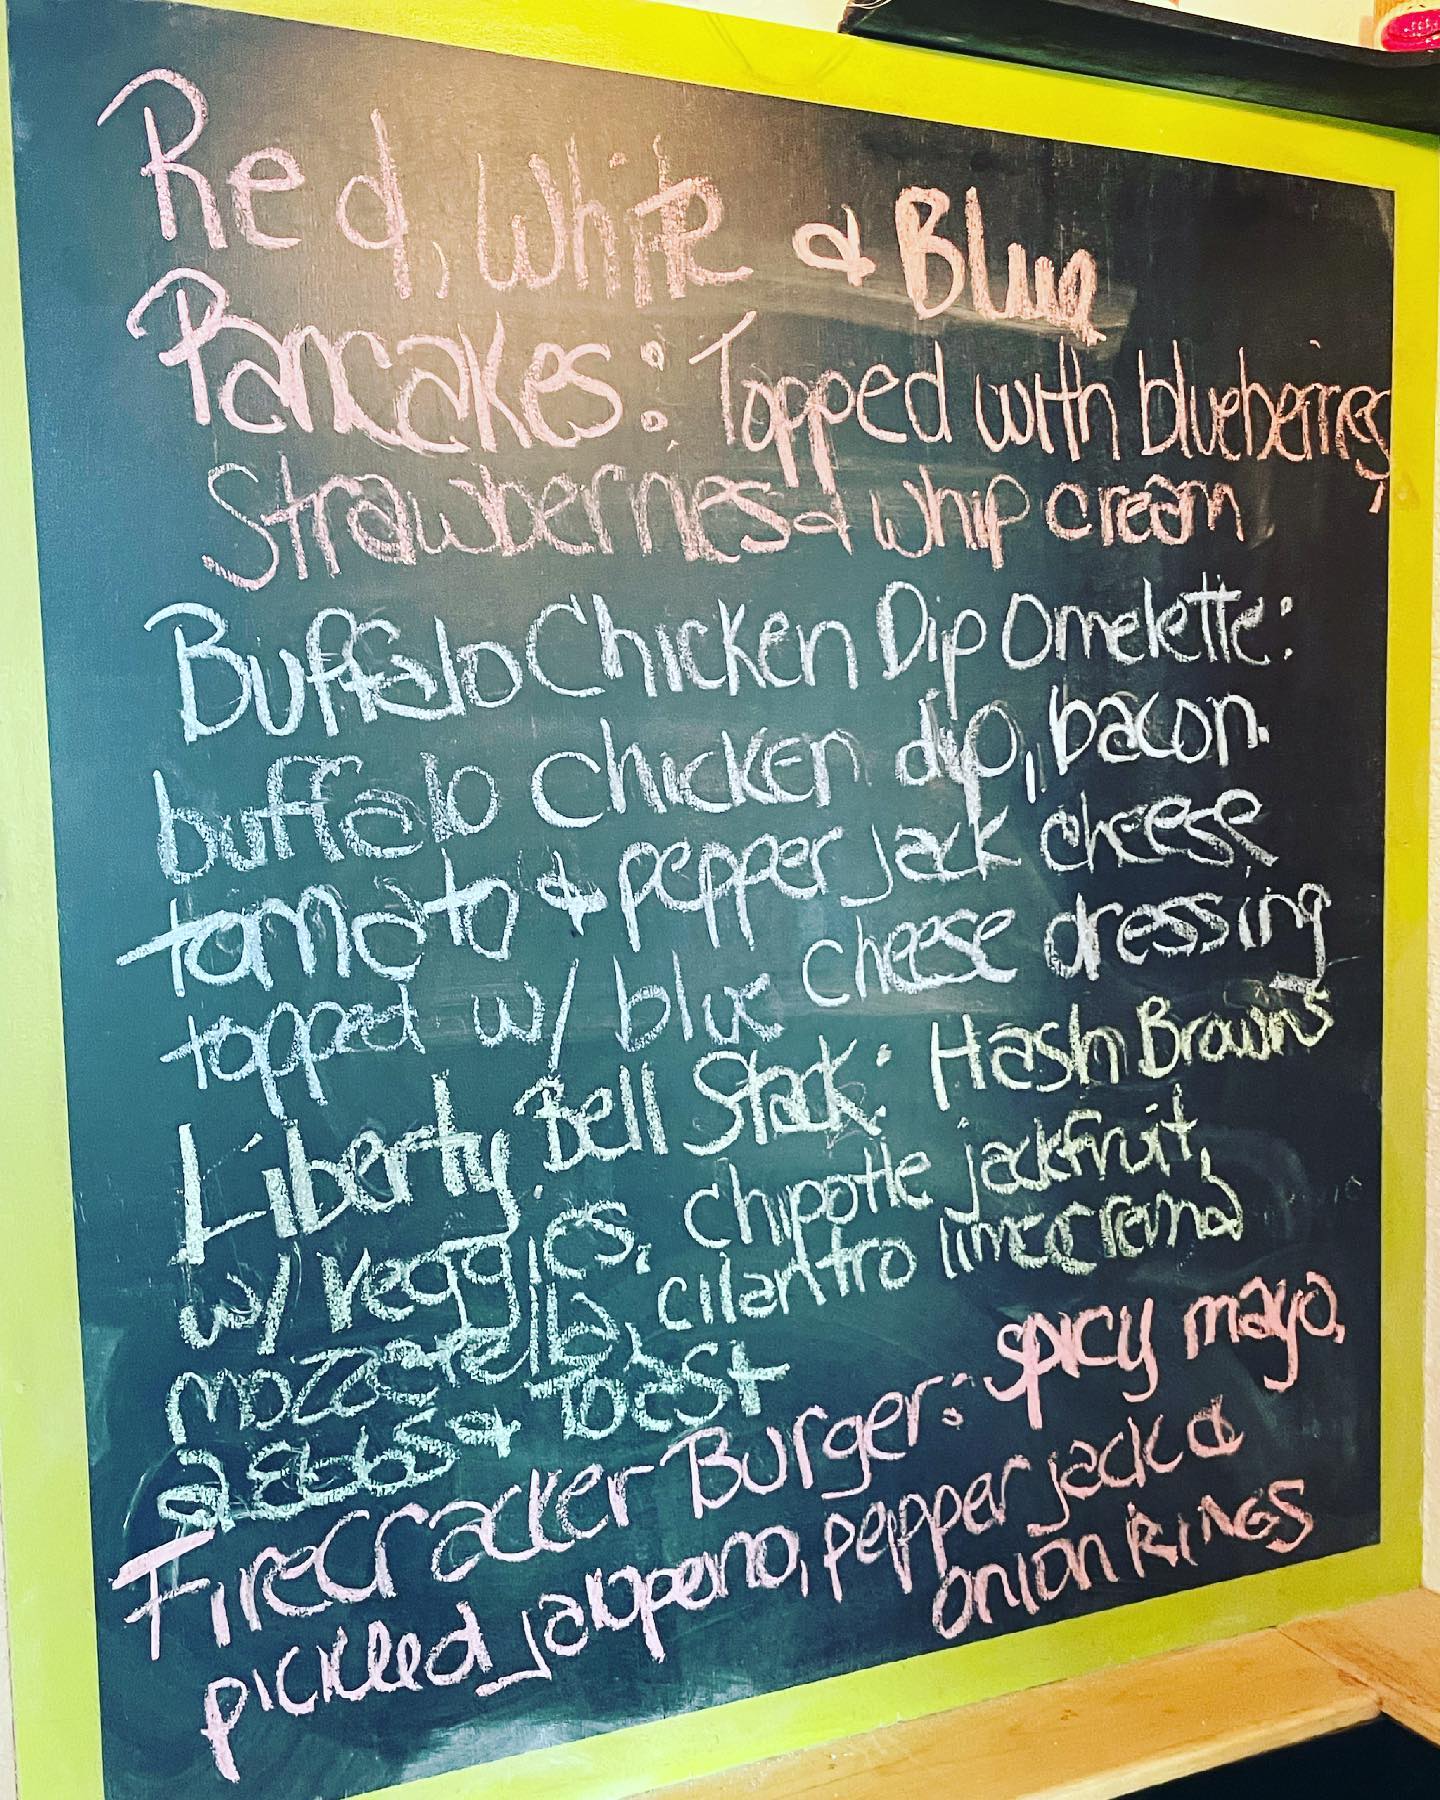 Red, White & Blue
Pancakes: Topped with blueberries,
Strawberries & whip cream
Buffalo Chicken Dip Omelette:
buffalo chicken dip, bacon.
tomato & pepper jack cheese
topped w/ blue cheese dressing
Liberty Bell Stack: Hash Browns
w/ veggies, chipotle jackfruit,
mozzarella, cilantro lime crema
2 EGGS & TOAST
Firecracker Burger: spicy mayo,
pickled jalapeno, pepper jack &
onion RINGS